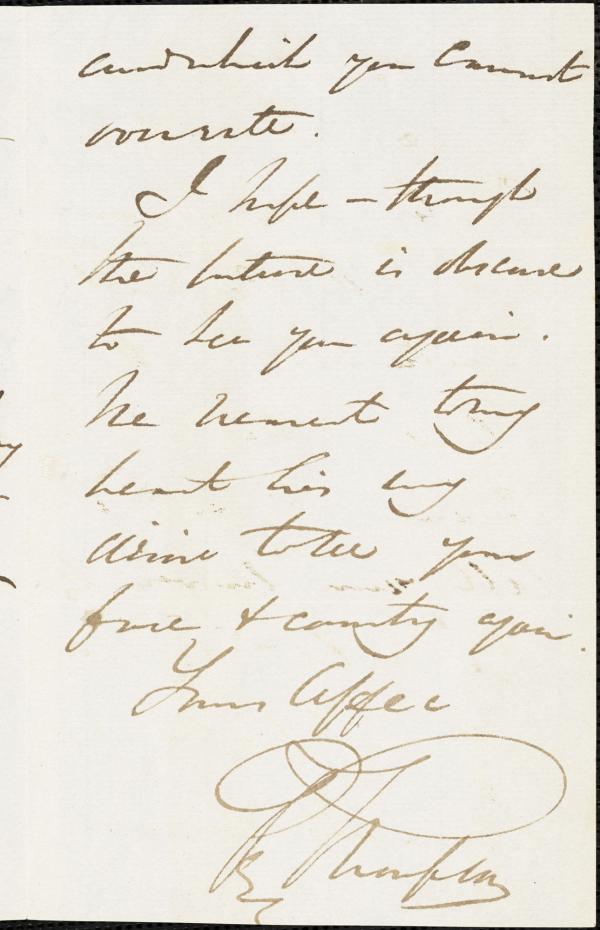 and which you cannot
overrate.
I hope – though
the future is obscure
to see you again.
nearest to my
heart lies my
desire to see your
face & country again.
Yours Affec
Geo Thompson